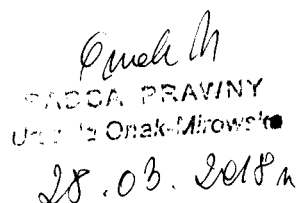 RADCA PRAWNY
Onak-Mirowska
28.03.2018r